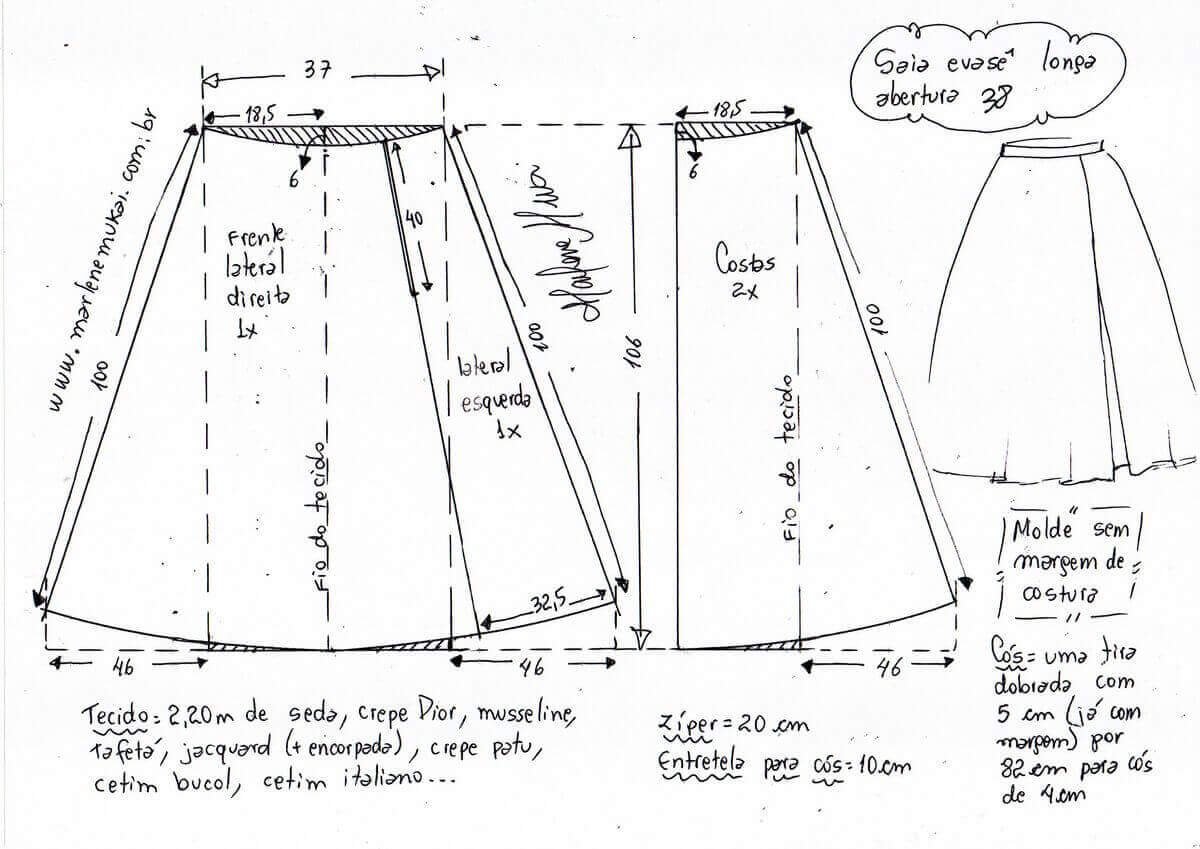 Saia evasê longa
abertura 38
37
18,5
6
www.marlenemukai.com.br
100
Frente
lateral
direita
1x
Fio do tecido
40
lateral
esquerda
1x
100
32,5
46
46
106
18,5
6
Costas
2x
Fio do tecido
100
46
"Molde sem
margem de
costura
Tecido: 2,20m de seda, crepe Dior, musseline,
tafetá, jacquard (+ encorpada), crepe patu,
cetim bucol, cetim italiano...
Zíper = 20 cm
Entretela para cós = 10cm
Cós = uma tira
dobrada com
5 cm (já com
margem) por
82 cm para cós
de 4 cm